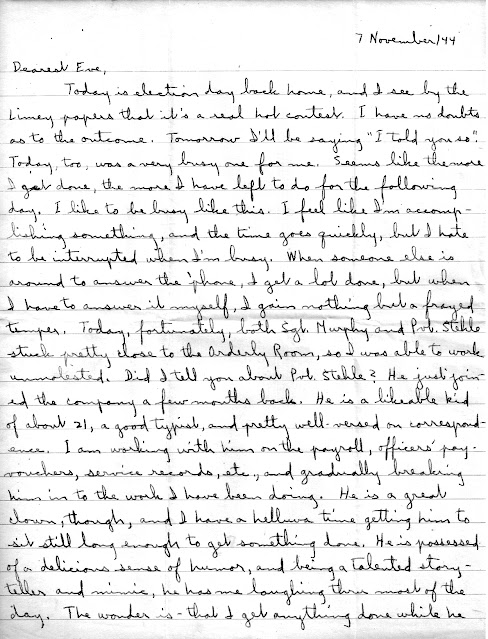 7 November/44
Dearest Eve,
Today is election day back home, and I see by the
Limey papers that it's a real hot contest. I have no doubts
as to the outcome. Tomorrow I'll be saying "I told you so".
Today, too, was a very busy one for me. Seems like the more
I get done, the more I have left to do for the following
day. I like to be busy like this. I feel like I'm accomp-
lishing something, and the time goes quickly, but I hate
to be interrupted when I'm busy. When someone else is
around to answer the 'phone, I get a lot done, but when
I have to answer it myself, I gain nothing but a frayed
temper. Today, fortunately, both Sgt. Murphy and Pvt. Stehle
stuck pretty close to the Orderly Room, so I was able to work
unmolested. Did I tell you about Pvt. Stehle? He just join-
ed the company a few months back. He is a likeable kid
of about 21, a good typist, and pretty well-versed on correspond-
ence. I am working with him on the payroll, officers' pay-
vouchers, service records, etc., and gradually breaking
him in to the work I have been doing. He is a great
clown, though, and I have a helluva time getting him to
sit still long enough to get something done. He is possessed
of a delicious sense of humor, and being a talented story-
teller and mimic, he has me laughing thru most of the
day. The wonder is - that I get anything done while he